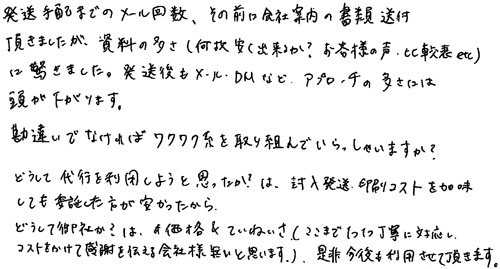 発送手配までのメール回数、その前に会社案内の書類送付
頂きましたが、資料の多さ(何故安く出来るか?お客様の声・比較表etc)
に驚きました。発送後もメール・DMなど、アプローチの多さには
頭が下がります。
勘違いでなければワクワク系を取り組んでいらっしゃいますか?
どうして代行を利用しようと思ったか?は、封入発送、印刷コストを加味
しても委託した方が安かったから。
どうして御社か?は、価格&ていねいさ(ここまで1つ1つ丁寧に対応し、
コストをかけて感謝を伝える会社様無いと思います。)、是非今後も利用させて頂きます。